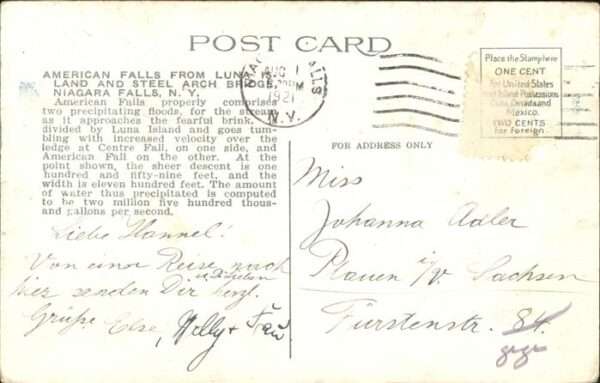 POST CARD
AMERICAN FALLS FROM LUNA IS-
LAND AND STEEL ARCH BRIDGE,
NIAGARA FALLS, N. Y.
American Falls properly comprises
two precipitating floods, for the stream
as it approaches the fearful brink, is
divided by Luna Island and goes tum-
bling with increased velocity over the
ledge at Centre Fall, on one side, and
American Fall on the other. At the
point shown, the sheer descent is one
hundred and fifty-nine feet, and the
width is eleven hundred feet. The amount
of water thus precipitated is computed
to be two million five hundred thous-
and gallons per second.
Liebe Hannel!
Von einer Reise nach
hier senden Dir herzl.
Grüße Else, Willy + Frau
AUG 1
PM
1921
N.Y.
Place the Stamp here
ONE CENT
For United States
and Island Possessions
Cuba, Canada and
Mexico.
TWO CENTS
for Foreign.
FOR ADDRESS ONLY
Miss
Johanna Adler
Plauen i/V. Sachsen
Fürstenstr. 84.